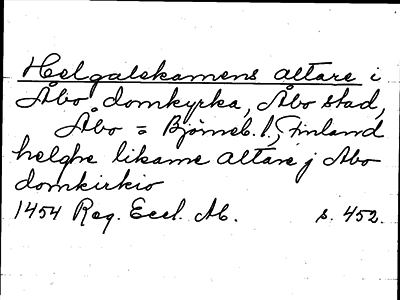 Helgalekamens altare i
Åbo domkyrka, Åbo stad,
Åbo = Björneb. l, Finland
helghe likame altare j Abo
domkirkio
1454 Reg. Eccl. Ab. s. 452.